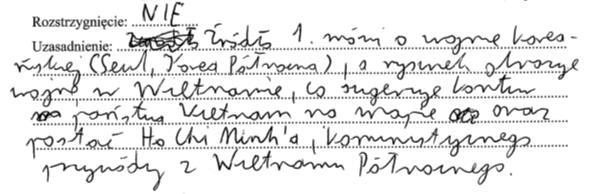 Rozstrzygnięcie: NIE
Uzasadnienie: Źródło 1. mówi o wojnę kore-
ńskiej (Seul, Korea Północna), a rysunek obrazuje
wojnę w Wietnamie, co sugeruje kontur
państwa Vietnam na mapie oraz
postać Ho Chi Minh'a, komunistycznego
przywódcy z Wietnamu Północnego.